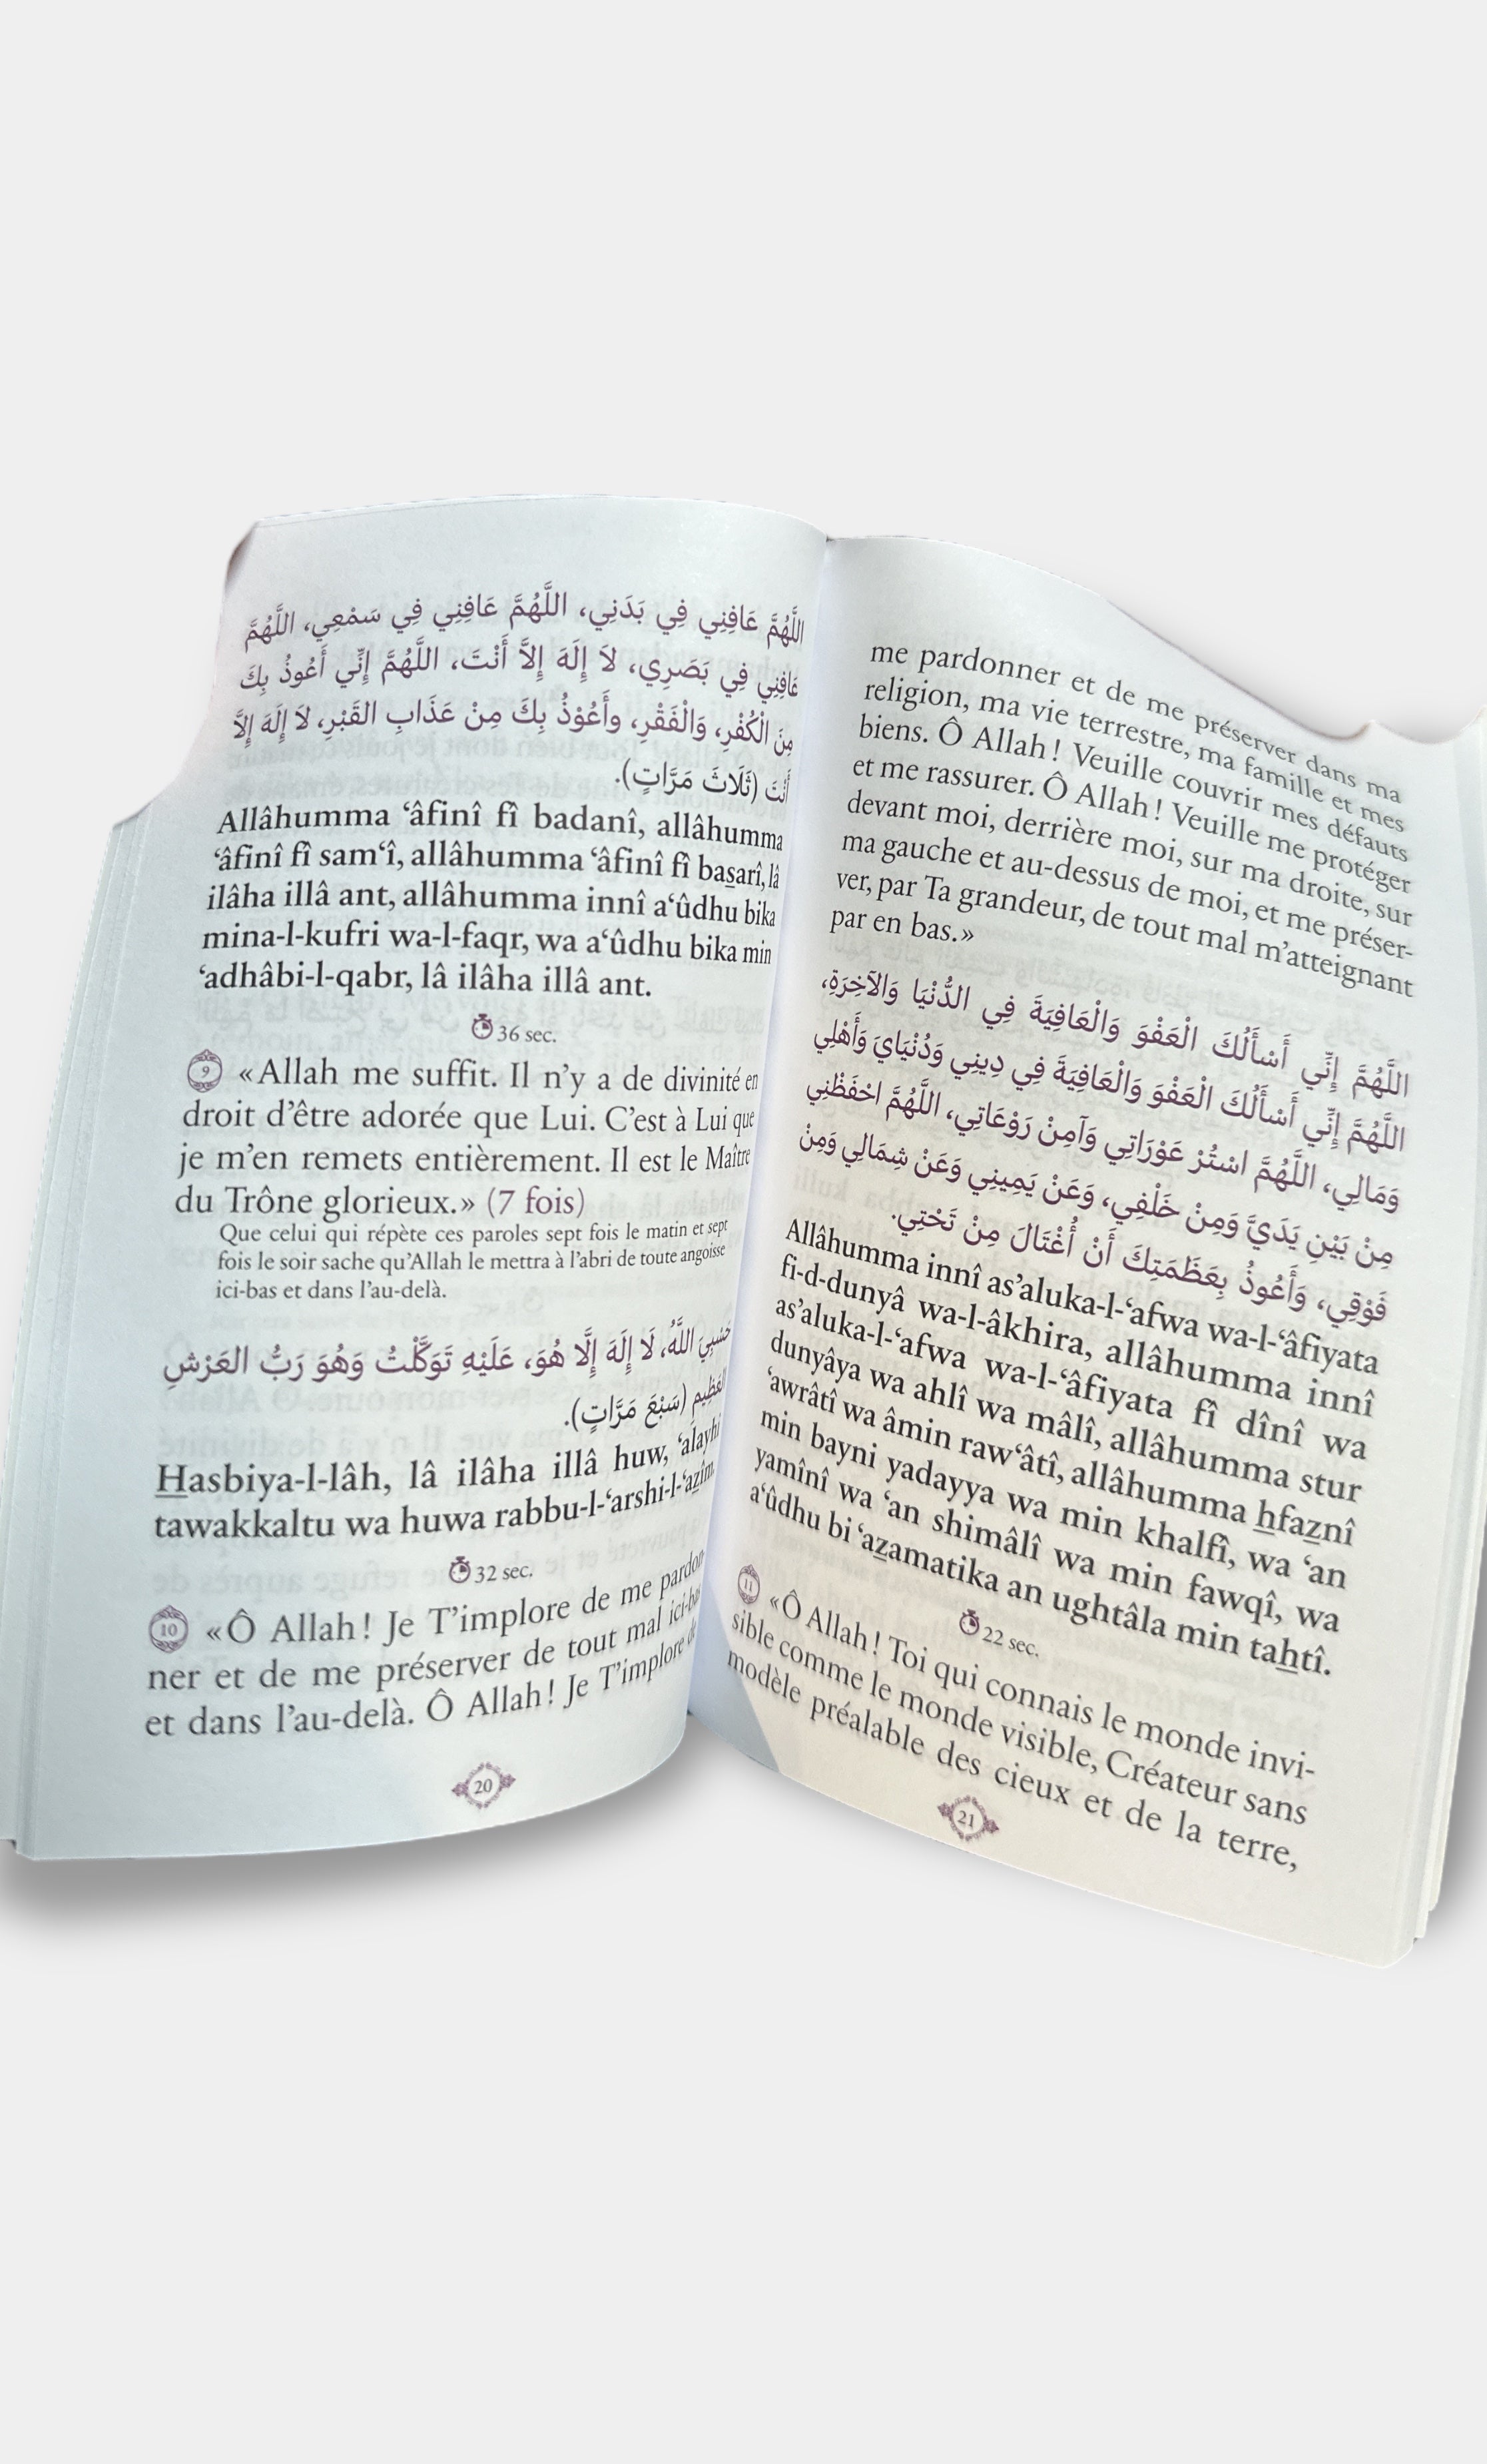 اللَّهُمَّ عَافِنِي فِي بَدَنِي، اللَّهُمَّ عَافِنِي فِي سَمْعِي، اللَّهُمَّ
عَافِنِي فِي بَصَرِي، لاَ إِلَهَ إِلاَّ أَنْتَ، اللَّهُمَّ إِنِّي أَعُوذُ بِكَ
مِنَ الْكُفْرِ، وَالْفَقْرِ، وأَعُوْذُ بِكَ مِنْ عَذَابِ القَبْرِ، لاَ إِلَهَ إِلاَّ
أَنْتَ (ثَلَاثَ مَرَّاتٍ).
Allâhumma ‘âfinî fî badanî, allâhumma
‘âfinî fî sam‘î, allâhumma ‘âfinî fî basarî, lâ
ilâha illâ ant, allâhumma innî a‘ûdhu bika
mina-l-kufri wa-l-faqr, wa a‘ûdhu bika min
‘adhâbi-l-qabr, lâ ilâha illâ ant.
36 sec.
9 «Allah me suffit. Il n’y a de divinité en
droit d’être adorée que Lui. C’est à Lui que
je m’en remets entièrement. Il est le Maître
du Trône glorieux.» (7 fois)
Que celui qui répète ces paroles sept fois le matin et sept
fois le soir sache qu’Allah le mettra à l’abri de toute angoisse
ici-bas et dans l’au-delà.
حَسْبِيَ اللَّهُ، لَا إِلَهَ إِلَّا هُوَ، عَلَيْهِ تَوَكَّلْتُ وَهُوَ رَبُّ العَرْشِ
العَظِيمِ (سَبْعَ مَرَّاتٍ).
Hasbiya-l-lâh, lâ ilâha illâ huw, ‘alayhi
tawakkaltu wa huwa rabbu-l-‘arshi-l-‘azîm.
32 sec.
10 «Ô Allah! Je T’implore de me pardon-
ner et de me préserver de tout mal ici-bas
et dans l’au-delà. Ô Allah! Je T’implore de
20
me pardonner et de me préserver dans ma
religion, ma vie terrestre, ma famille et mes
biens. Ô Allah! Veuille couvrir mes défauts
et me rassurer. Ô Allah! Veuille me protéger
devant moi, derrière moi, sur ma droite, sur
ma gauche et au-dessus de moi, et me préser-
ver, par Ta grandeur, de tout mal m’atteignant
par en bas.»
اللَّهُمَّ إِنِّي أَسْأَلُكَ الْعَفْوَ وَالْعَافِيَةَ فِي الدُّنْيَا وَالآخِرَةِ،
اللَّهُمَّ إِنِّي أَسْأَلُكَ الْعَفْوَ وَالْعَافِيَةَ فِي دِينِي وَدُنْيَايَ وَأَهْلِي
وَمَالِي، اللَّهُمَّ اسْتُرْ عَوْرَاتِي وَآمِنْ رَوْعَاتِي، اللَّهُمَّ احْفَظْنِي
مِنْ بَيْنِ يَدَيَّ وَمِنْ خَلْفِي، وَعَنْ يَمِينِي وَعَنْ شِمَالِي وَمِنْ
فَوْقِي، وَأَعُوذُ بِعَظَمَتِكَ أَنْ أُغْتَالَ مِنْ تَحْتِي.
Allâhumma innî as’aluka-l-‘afwa wa-l-‘âfiyata
fi-d-dunyâ wa-l-âkhira, allâhumma innî
as’aluka-l-‘afwa wa-l-‘âfiyata fî dînî wa
dunyâya wa ahlî wa mâlî, allâhumma stur
‘awrâtî wa âmin raw‘âtî, allâhumma hfaznî
min bayni yadayya wa min khalfî, wa ‘an
yamînî wa ‘an shimâlî wa min fawqî, wa
a‘ûdhu bi ‘azamatika an ughtâla min tahtî.
22 sec.
11 «Ô Allah! Toi qui connais le monde invi-
sible comme le monde visible, Créateur sans
modèle préalable des cieux et de la terre,
21